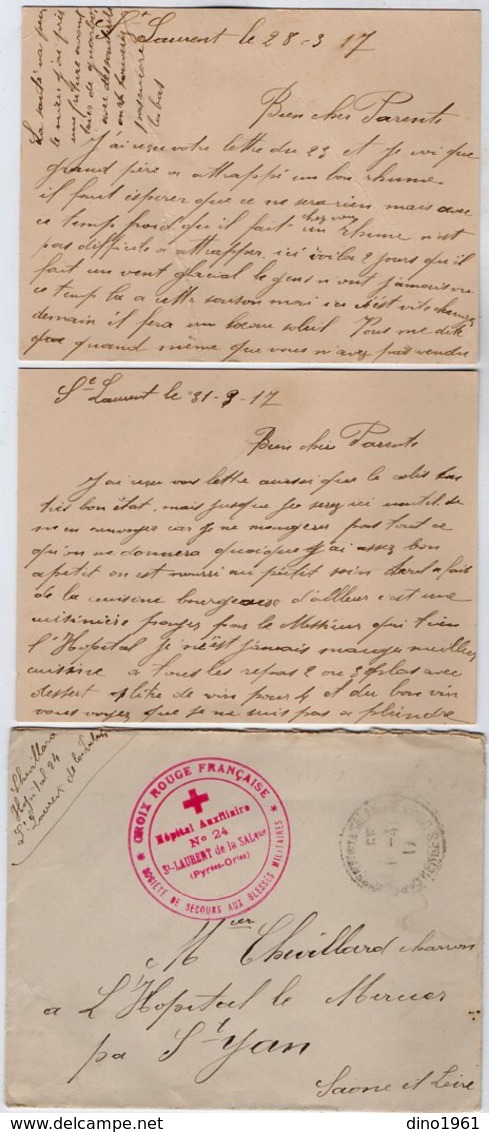 St Laurent le 28-3 17
La santé va pas
Bien cher Parents
J'ai reçu votre lettre du 23 et je voi que
grand père a attrappé un bon rhume
il faut espirer que ce ne sera rien mais avec
ce temp froid qu'il fait chez vous un rhume n'est
pas difficile a attrapper, ici voila 2 jours qu'il
fait un vent glacial le gens n'ont jamais vu
ce temp la a cette saison mai ici s'est vite changer
demain il fera un beau soleil Vous me dite
que quand même que vous n'avez pas vendu
St Laurent le 31-3-17
Bien cher Parents
J'ai reçu vos lettre aussi que le colis
très bon état, mais jusque je serez ici inutil de
m'en envoyer car je ne mangerez pas tout ce
qu'on me donnera quoique j'ai assez bon
apetit on est nourri au petit soin tout a fait
de la cuisine bourgeoise d'ailleur c'est une
cuisinière payez par le Messieur qui tien
l'Hopital je n'est jamais mangé meilleur
cuisine a tous les repas 2 ou 3 plas avec
dessert 1 litre de vin pour 4 et du bon vin
vous voyez que je ne suis pas a plaindre
Chevillard
Hopital 24
St Laurent de la Salanque
CROIX ROUGE FRANÇAISE
Hôpital Auxiliaire
No 24
St-LAURENT de la SALque
(Pyrées-Orles)
SOCIÉTÉ DE SECOURS AUX BLESSÉS MILITAIRES
Mr Chevillard charron
a L'Hopital le Mercier
pa St Yan
Saone et Loire
dino1961